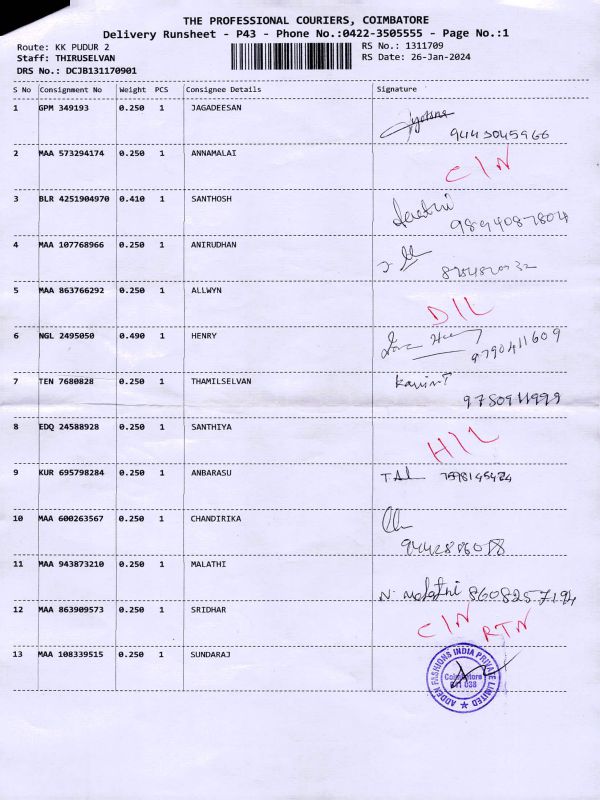 THE PROFESSIONAL COURIERS, COIMBATORE
Delivery Runsheet - P43 - Phone No.:0422-3505555 - Page No.:1
Route: KK PUDUR 2 RS No.: 1311709
Staff: THIRUSELVAN RS Date: 26-Jan-2024
DRS No.: DCJB131170901
S No Consignment No Weight PCS Consignee Details Signature
1 GPM 349193 0.250 1 JAGADEESAN
9443045966
2 MAA 573294174 0.250 1 ANNAMALAI
C/N
3 BLR 4251904970 0.410 1 SANTHOSH
9894087804
4 MAA 107768966 0.250 1 ANIRUDHAN
5 MAA 863766292 0.250 1 ALLWYN
D/L
6 NGL 2495050 0.490 1 HENRY
9790411609
7 TEN 7680828 0.250 1 THAMILSELVAN
9750911999
8 EDQ 24588928 0.250 1 SANTHIYA
H/L
9 KUR 695798284 0.250 1 ANBARASU
10 MAA 600263567 0.250 1 CHANDIRIKA
11 MAA 943873210 0.250 1 MALATHI
N. Malathi 8608257194
12 MAA 863909573 0.250 1 SRIDHAR
C/N RTN
13 MAA 108339515 0.250 1 SUNDARAJ
ADDEN FASHIONS INDIA PRIVATE LIMITED
Coimbatore
641 038